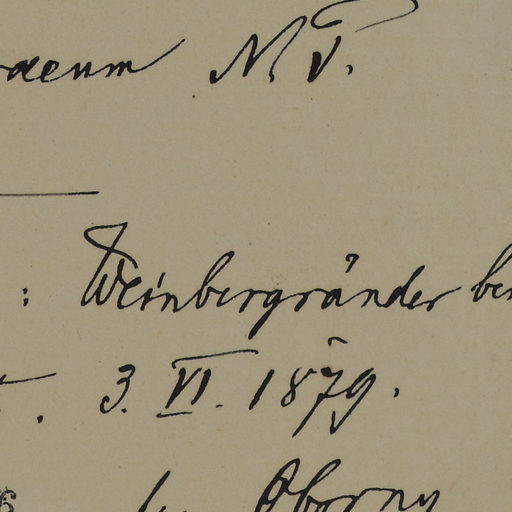 M. T.
: Weinbergränder bei
. 3. VI. 1879.
Oborny